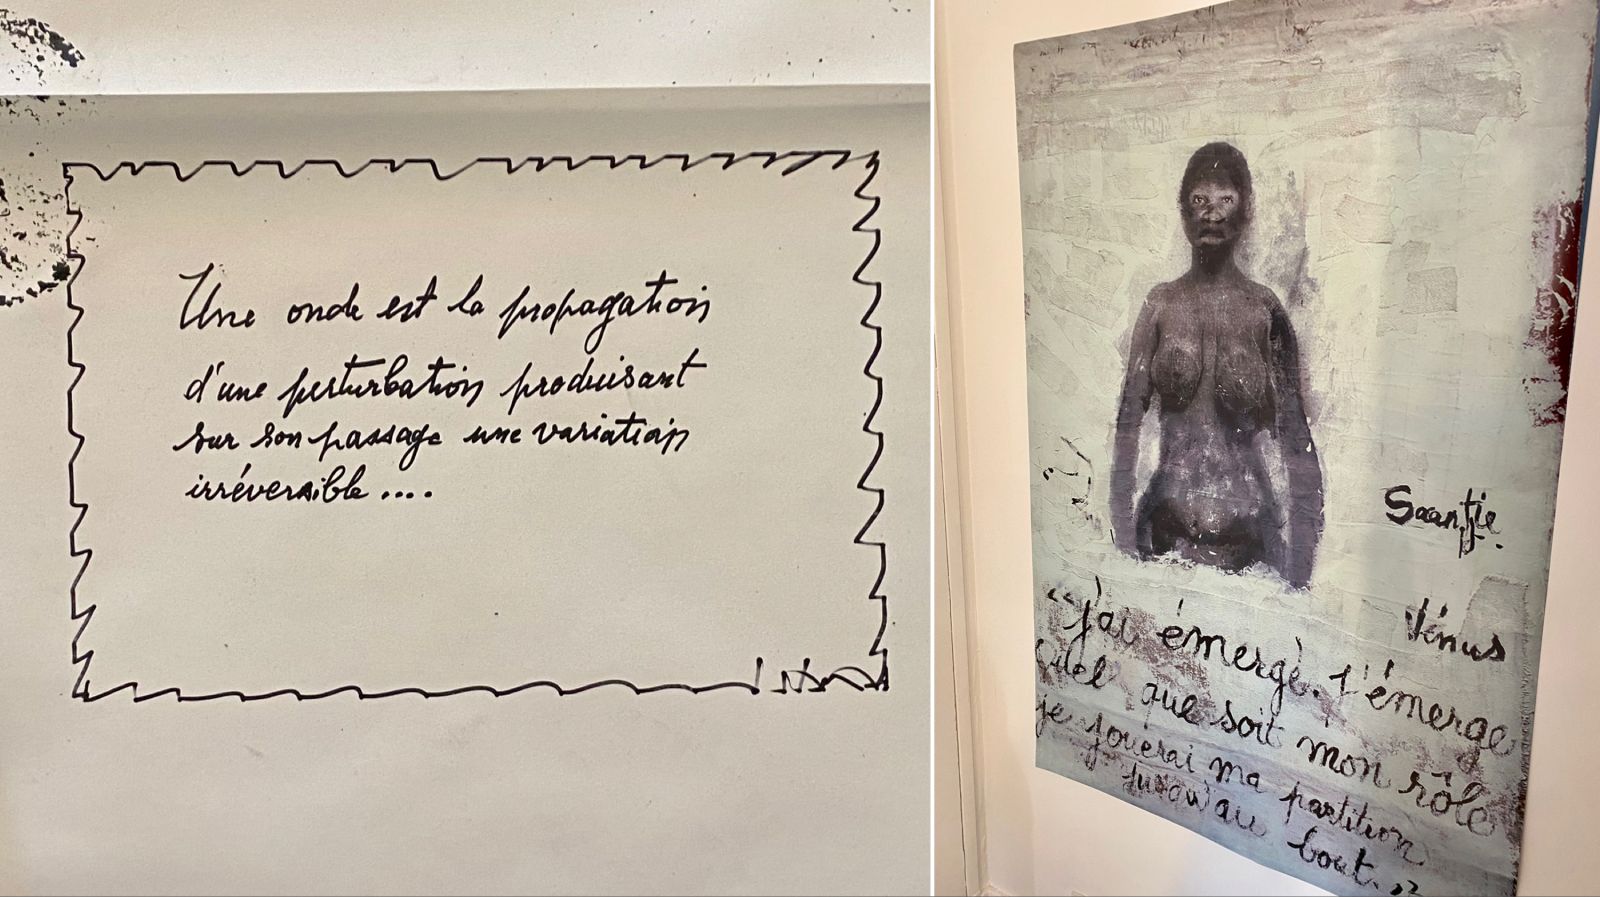 Une onde est la propagation
d'une perturbation produisant
sur son passage une variation
irréversible ....
Saartjie.
Vénus
"j'ai émergé. J'émerge
Quel que soit mon rôle
je jouerai ma partition
jusqu'au bout."